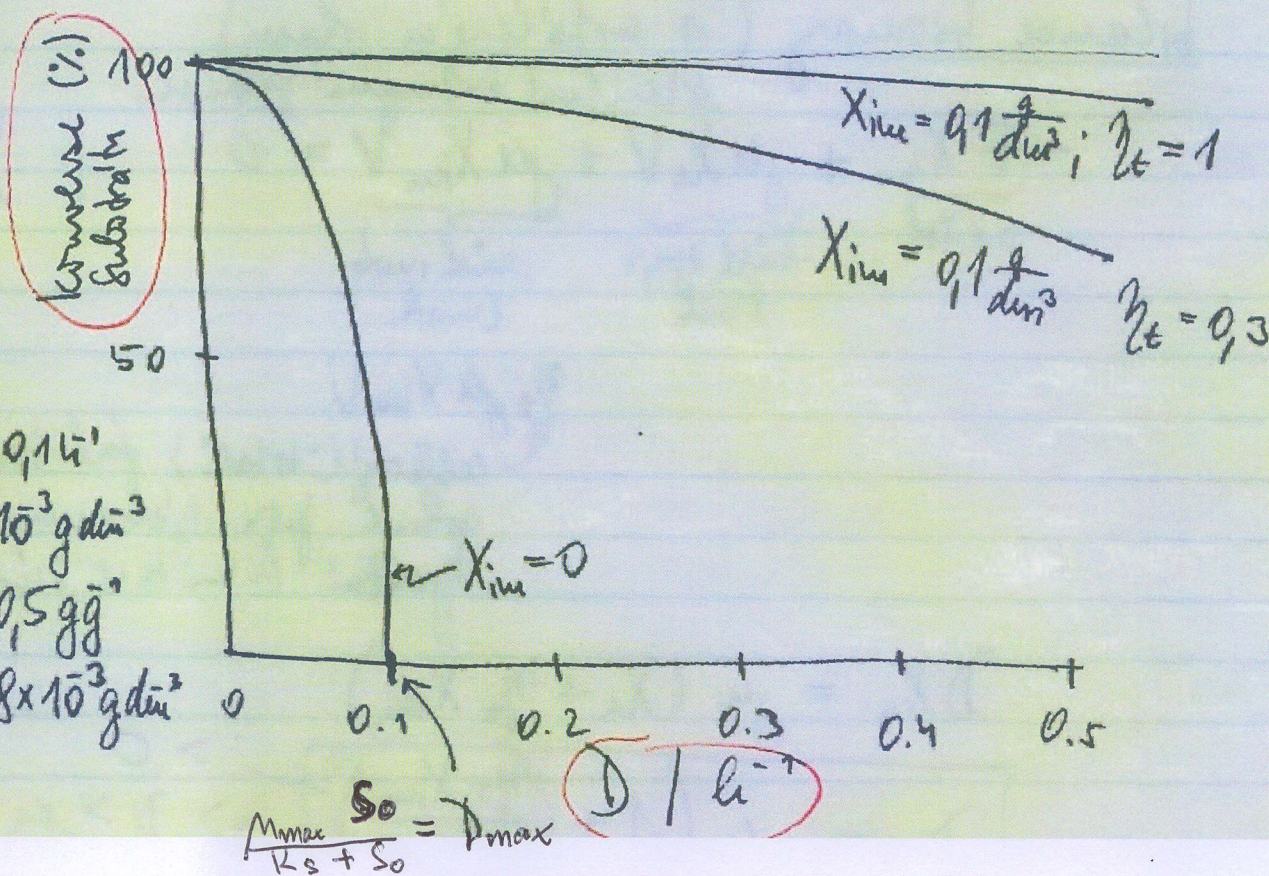 Konverse
Substrátu (%)
100
50
X_im = 0,1 g/dm³ ; η_t = 1
X_im = 0,1 g/dm³
η_t = 0,3
0,1 h⁻¹
10⁻³ g dm⁻³
0,5 g g⁻¹
8×10⁻³ g dm⁻³
X_im = 0
0 0.1 0.2 0.3 0.4 0.5
D / h⁻¹
μ_max S₀ / (K_s + S₀) = D_max